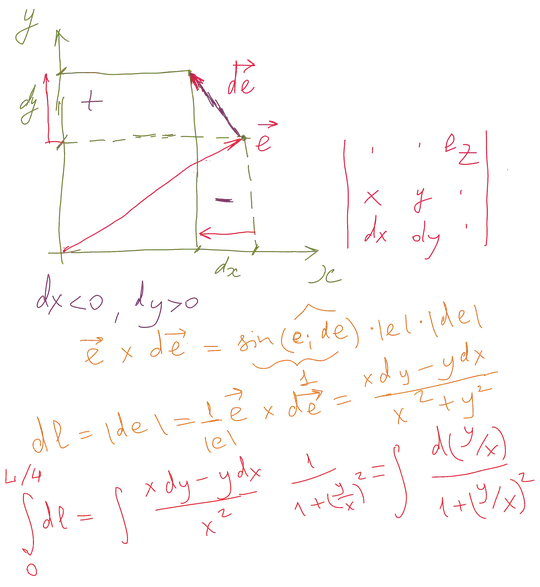 y
dy
+
de
e
-
dx
x
. . e_z
x y .
dx dy .
dx<0, dy>0
e × de = sin(e; de) · |e| · |de|
1
dl = |de| = 1/|e| e × de = (x dy - y dx)/(x² + y²)
∫₀^{L/4} dl = ∫ (x dy - y dx)/x² 1/(1+(y/x)²) = ∫ d(y/x)/(1+(y/x)²)